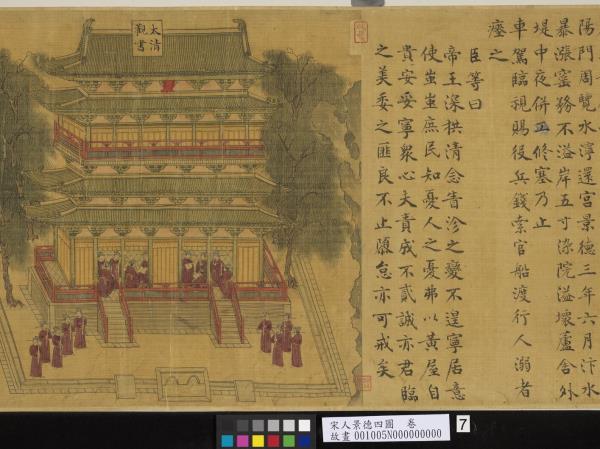 陽門周覽水濘還宮景德三年六月汴水
暴漲務不溢岸五寸染院溢壞廬舍外
堤中夜併工修塞乃止
車駕臨視賜役兵錢索官船渡行人溺者
瘞之
臣等曰
帝王深拱清念眚沴之變不遑寧居意
使蚩蚩庶民知憂人之憂弗以黃屋自
貴安妥寧衆心夫責成不貳誠亦君臨
之美委之匪良不止隳怠亦可戒矣
太清
觀書
宋人景德四圖 卷
故畫 001005N000000000
7